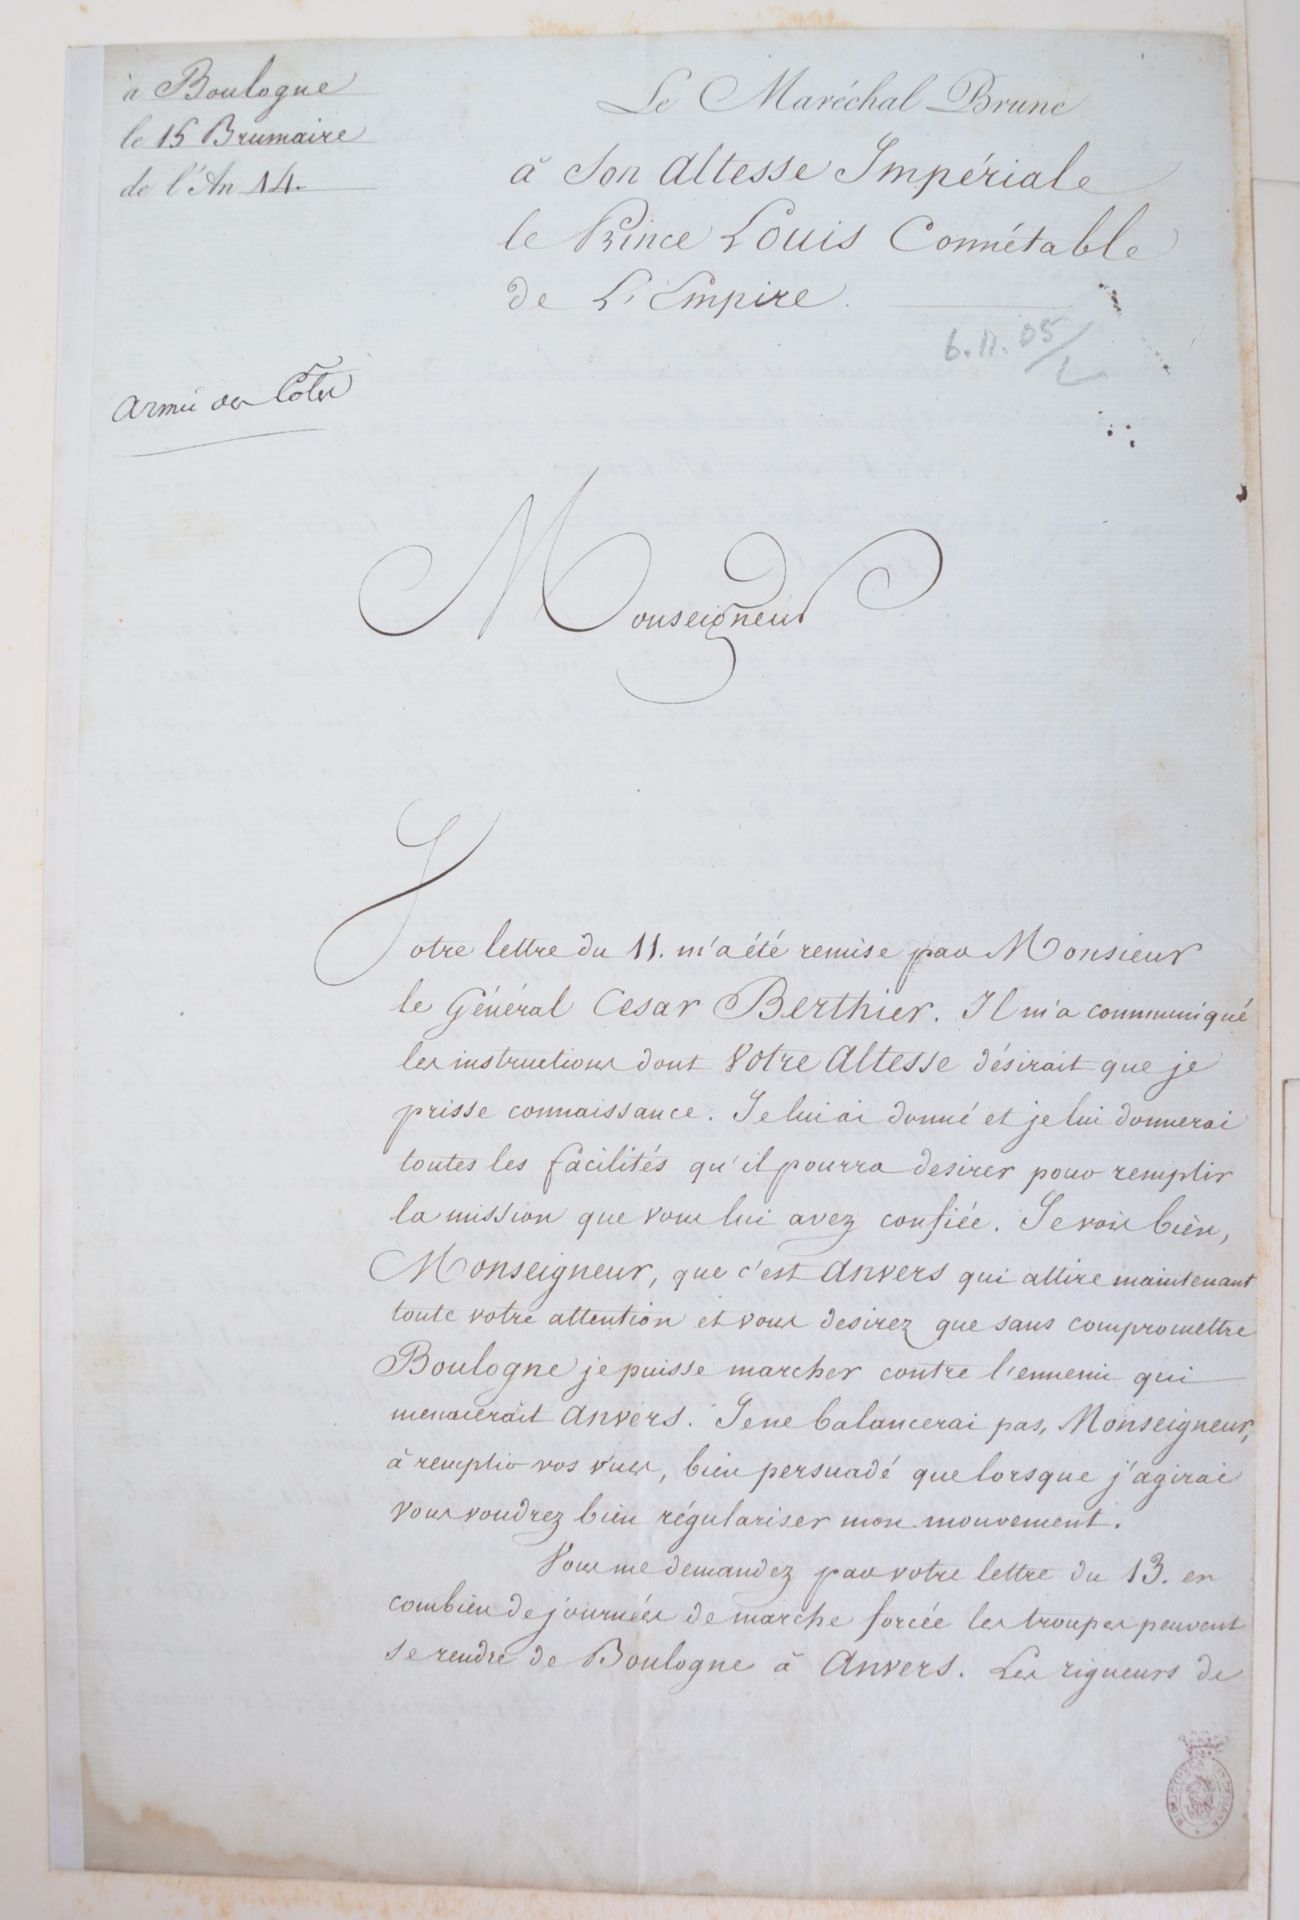 à Boulogne
le 15 Brumaire
de l'An 14.
Le Maréchal Brune
à Son Altesse Impériale
le Prince Louis Connétable
de L'Empire.
6.11.05
Armée des Côtes
Monseigneur
Votre lettre du 11. m'a été remise par Monsieur
le Général Cesar Berthier. Il m'a communiqué
les instructions dont Votre Altesse désirait que je
prisse connaissance. Je lui ai donné et je lui donnerai
toutes les facilités qu'il pourra desirer pour remplir
la mission que vous lui avez confiée. Je vois bien,
Monseigneur, que c'est Anvers qui attire maintenant
toute votre attention et vous desirez que sans compromettre
Boulogne je puisse marcher contre l'ennemi qui
menacerait Anvers. Je ne balancerai pas, Monseigneur,
à remplir vos vues, bien persuadé que lorsque j'agirai
vous voudrez bien régulariser mon mouvement.
Vous me demandez par votre lettre du 13. en
combien de journées de marche forcée les troupes peuvent
se rendre de Boulogne à Anvers. Les rigueurs de